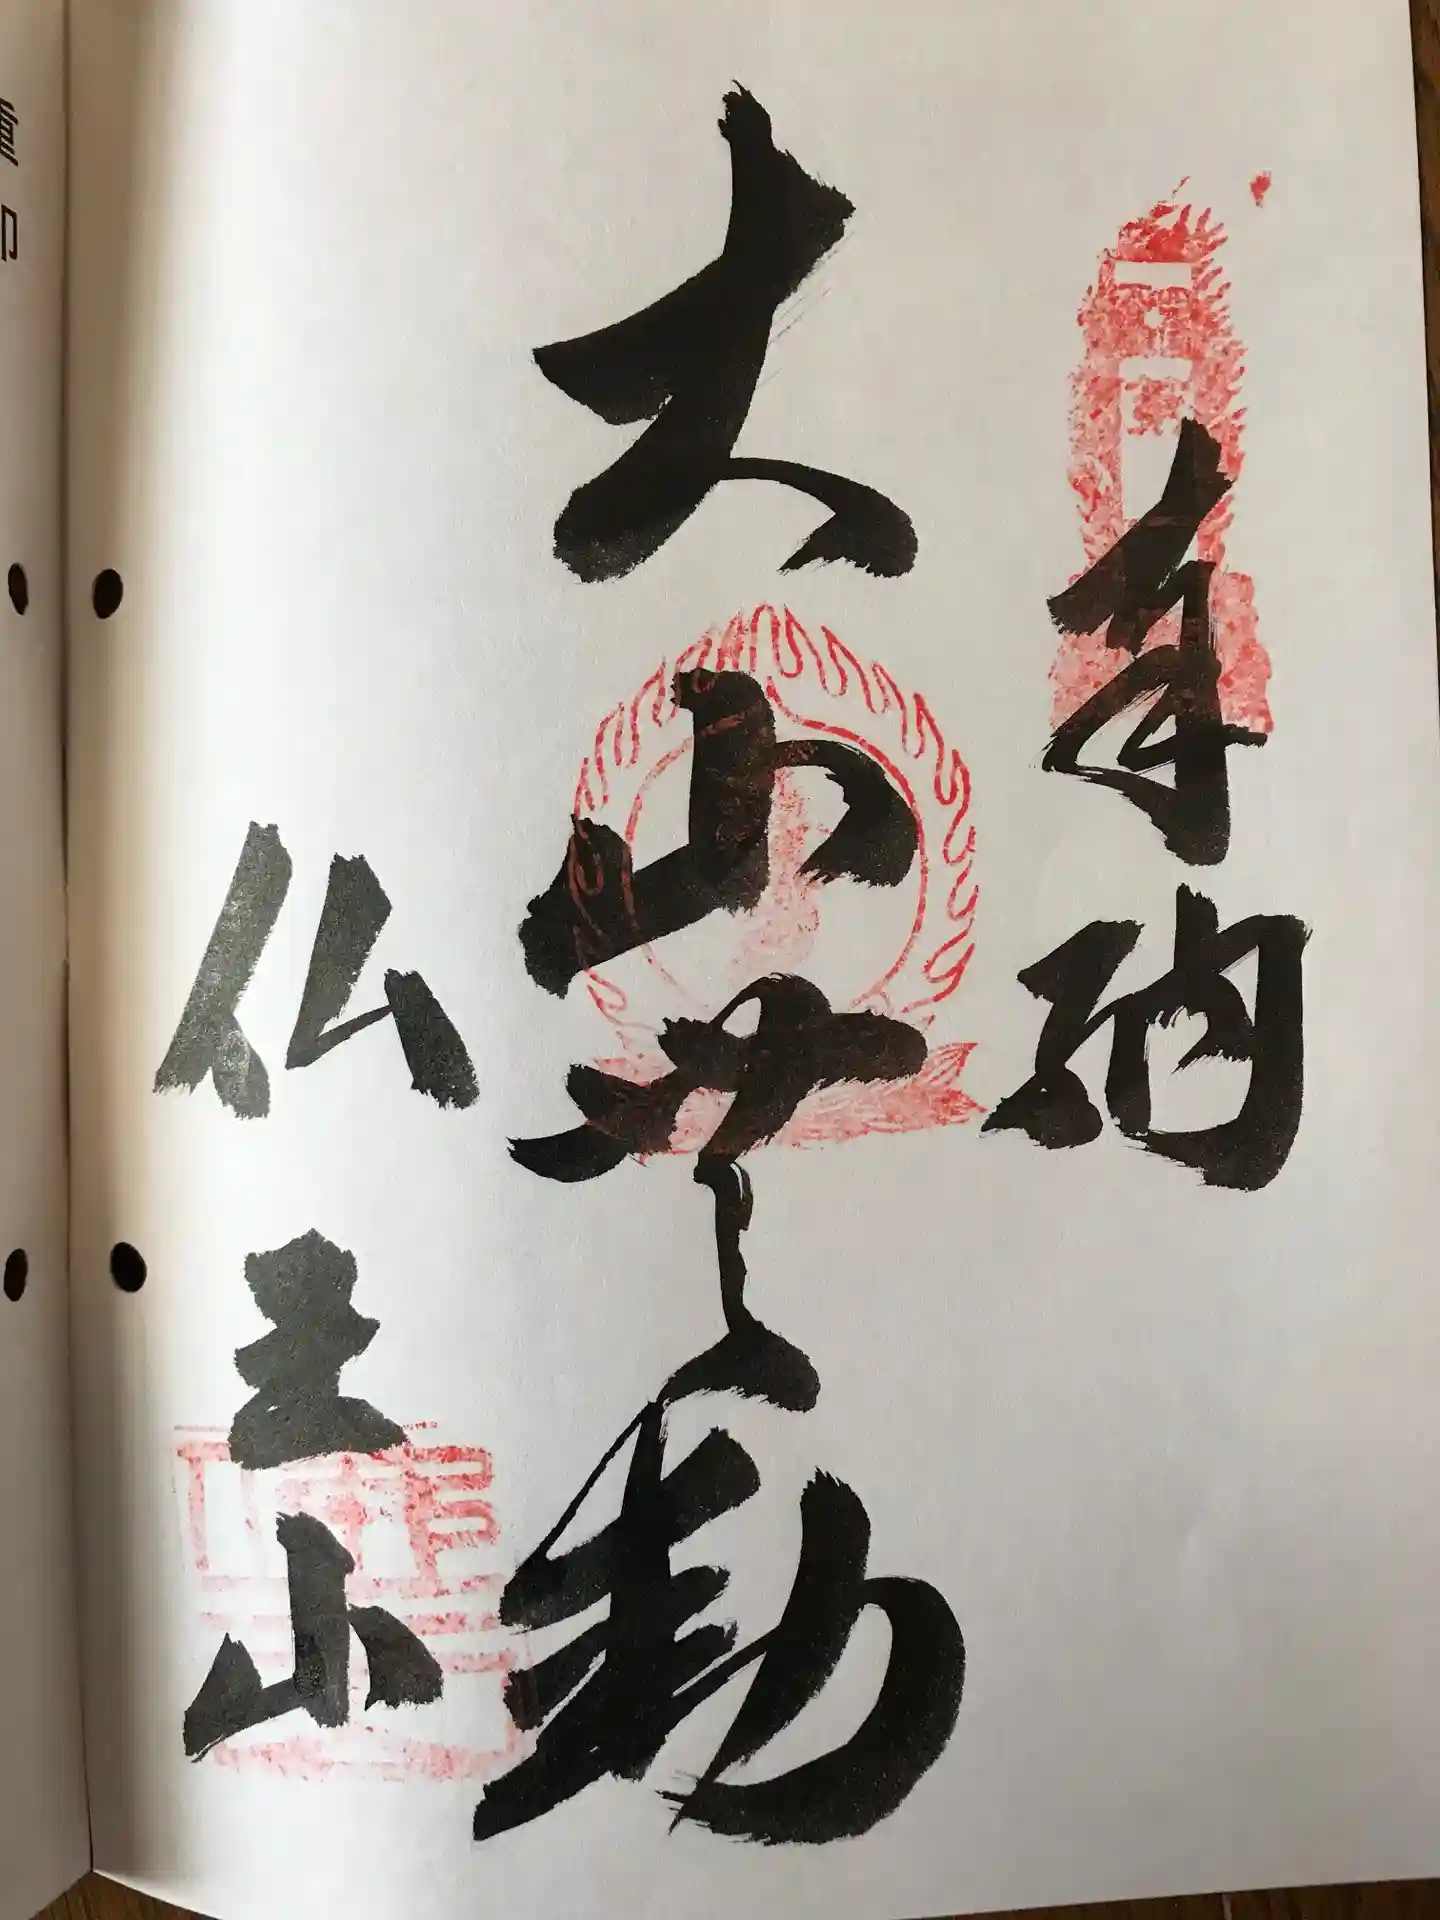 奉納
大山不動
仏立山